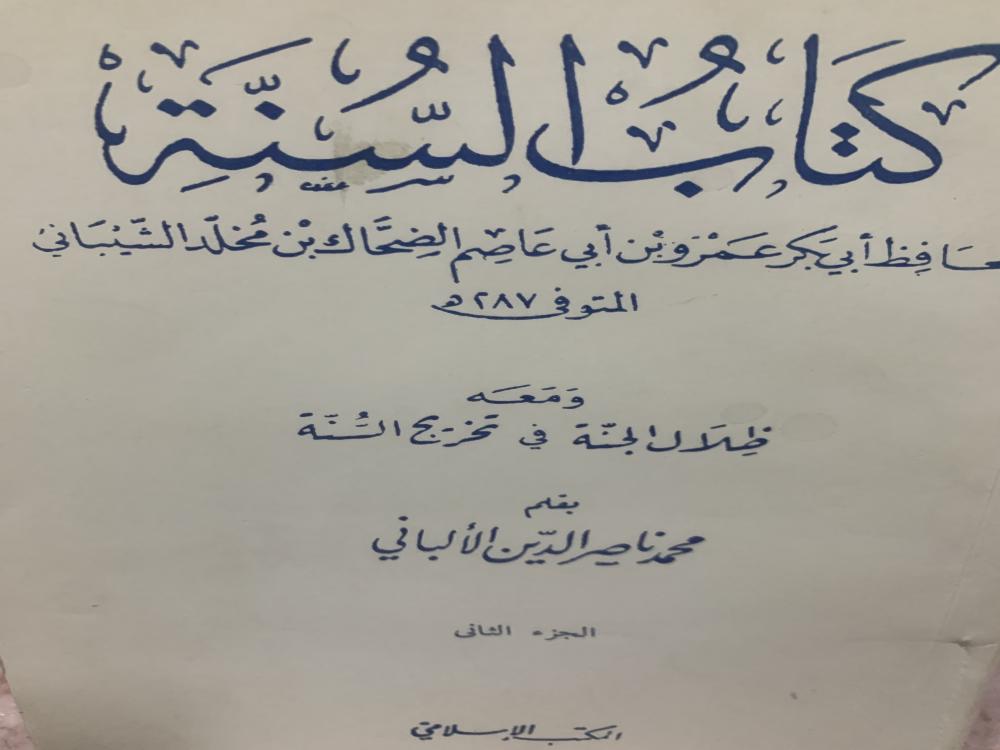 كتاب السنة
حافظ أبي بكر عمرو بن أبي عاصم الضحاك بن مخلد الشيباني
المتوفى ٢٨٧ هـ
ومعه
ظلال الجنة في تخريج السنة
بقلم
محمد ناصر الدين الألباني
الجزء الثاني
المكتب الإسلامي